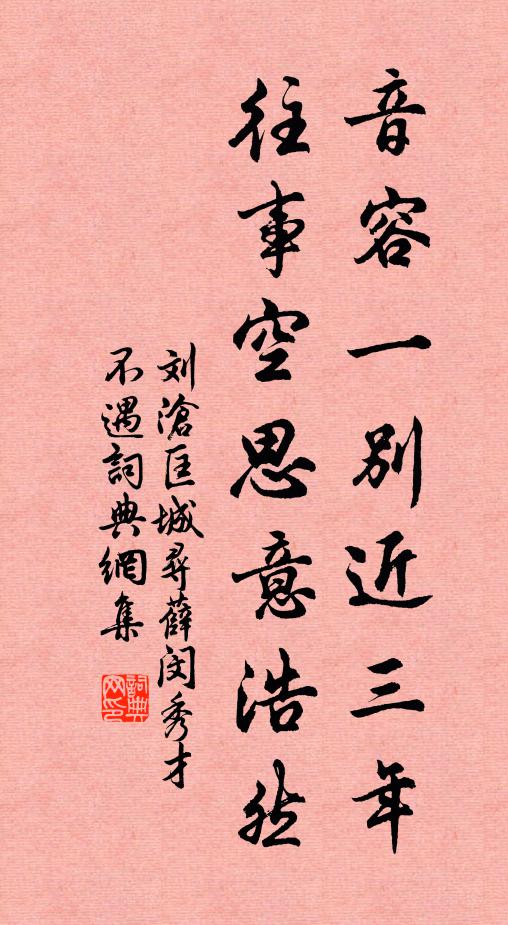 音容一別近三年
往事空思意浩然
刘滄匡城尋薛閔秀才
不遇詞典網集
詞典
网印